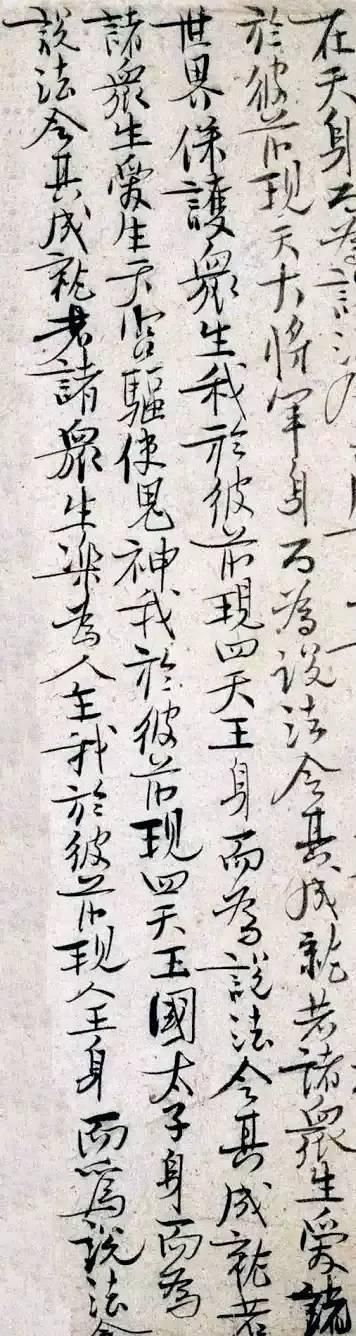 在天身而為說法
於彼前現天大將軍身而為說法令其成就若諸眾生愛
世界保護眾生我於彼前現四天王身而為說法令其成就若
諸眾生愛生天宮驅使鬼神我於彼前現四天王國太子身而為
說法令其成就若諸眾生樂為人王我於彼前現人王身而為說法令